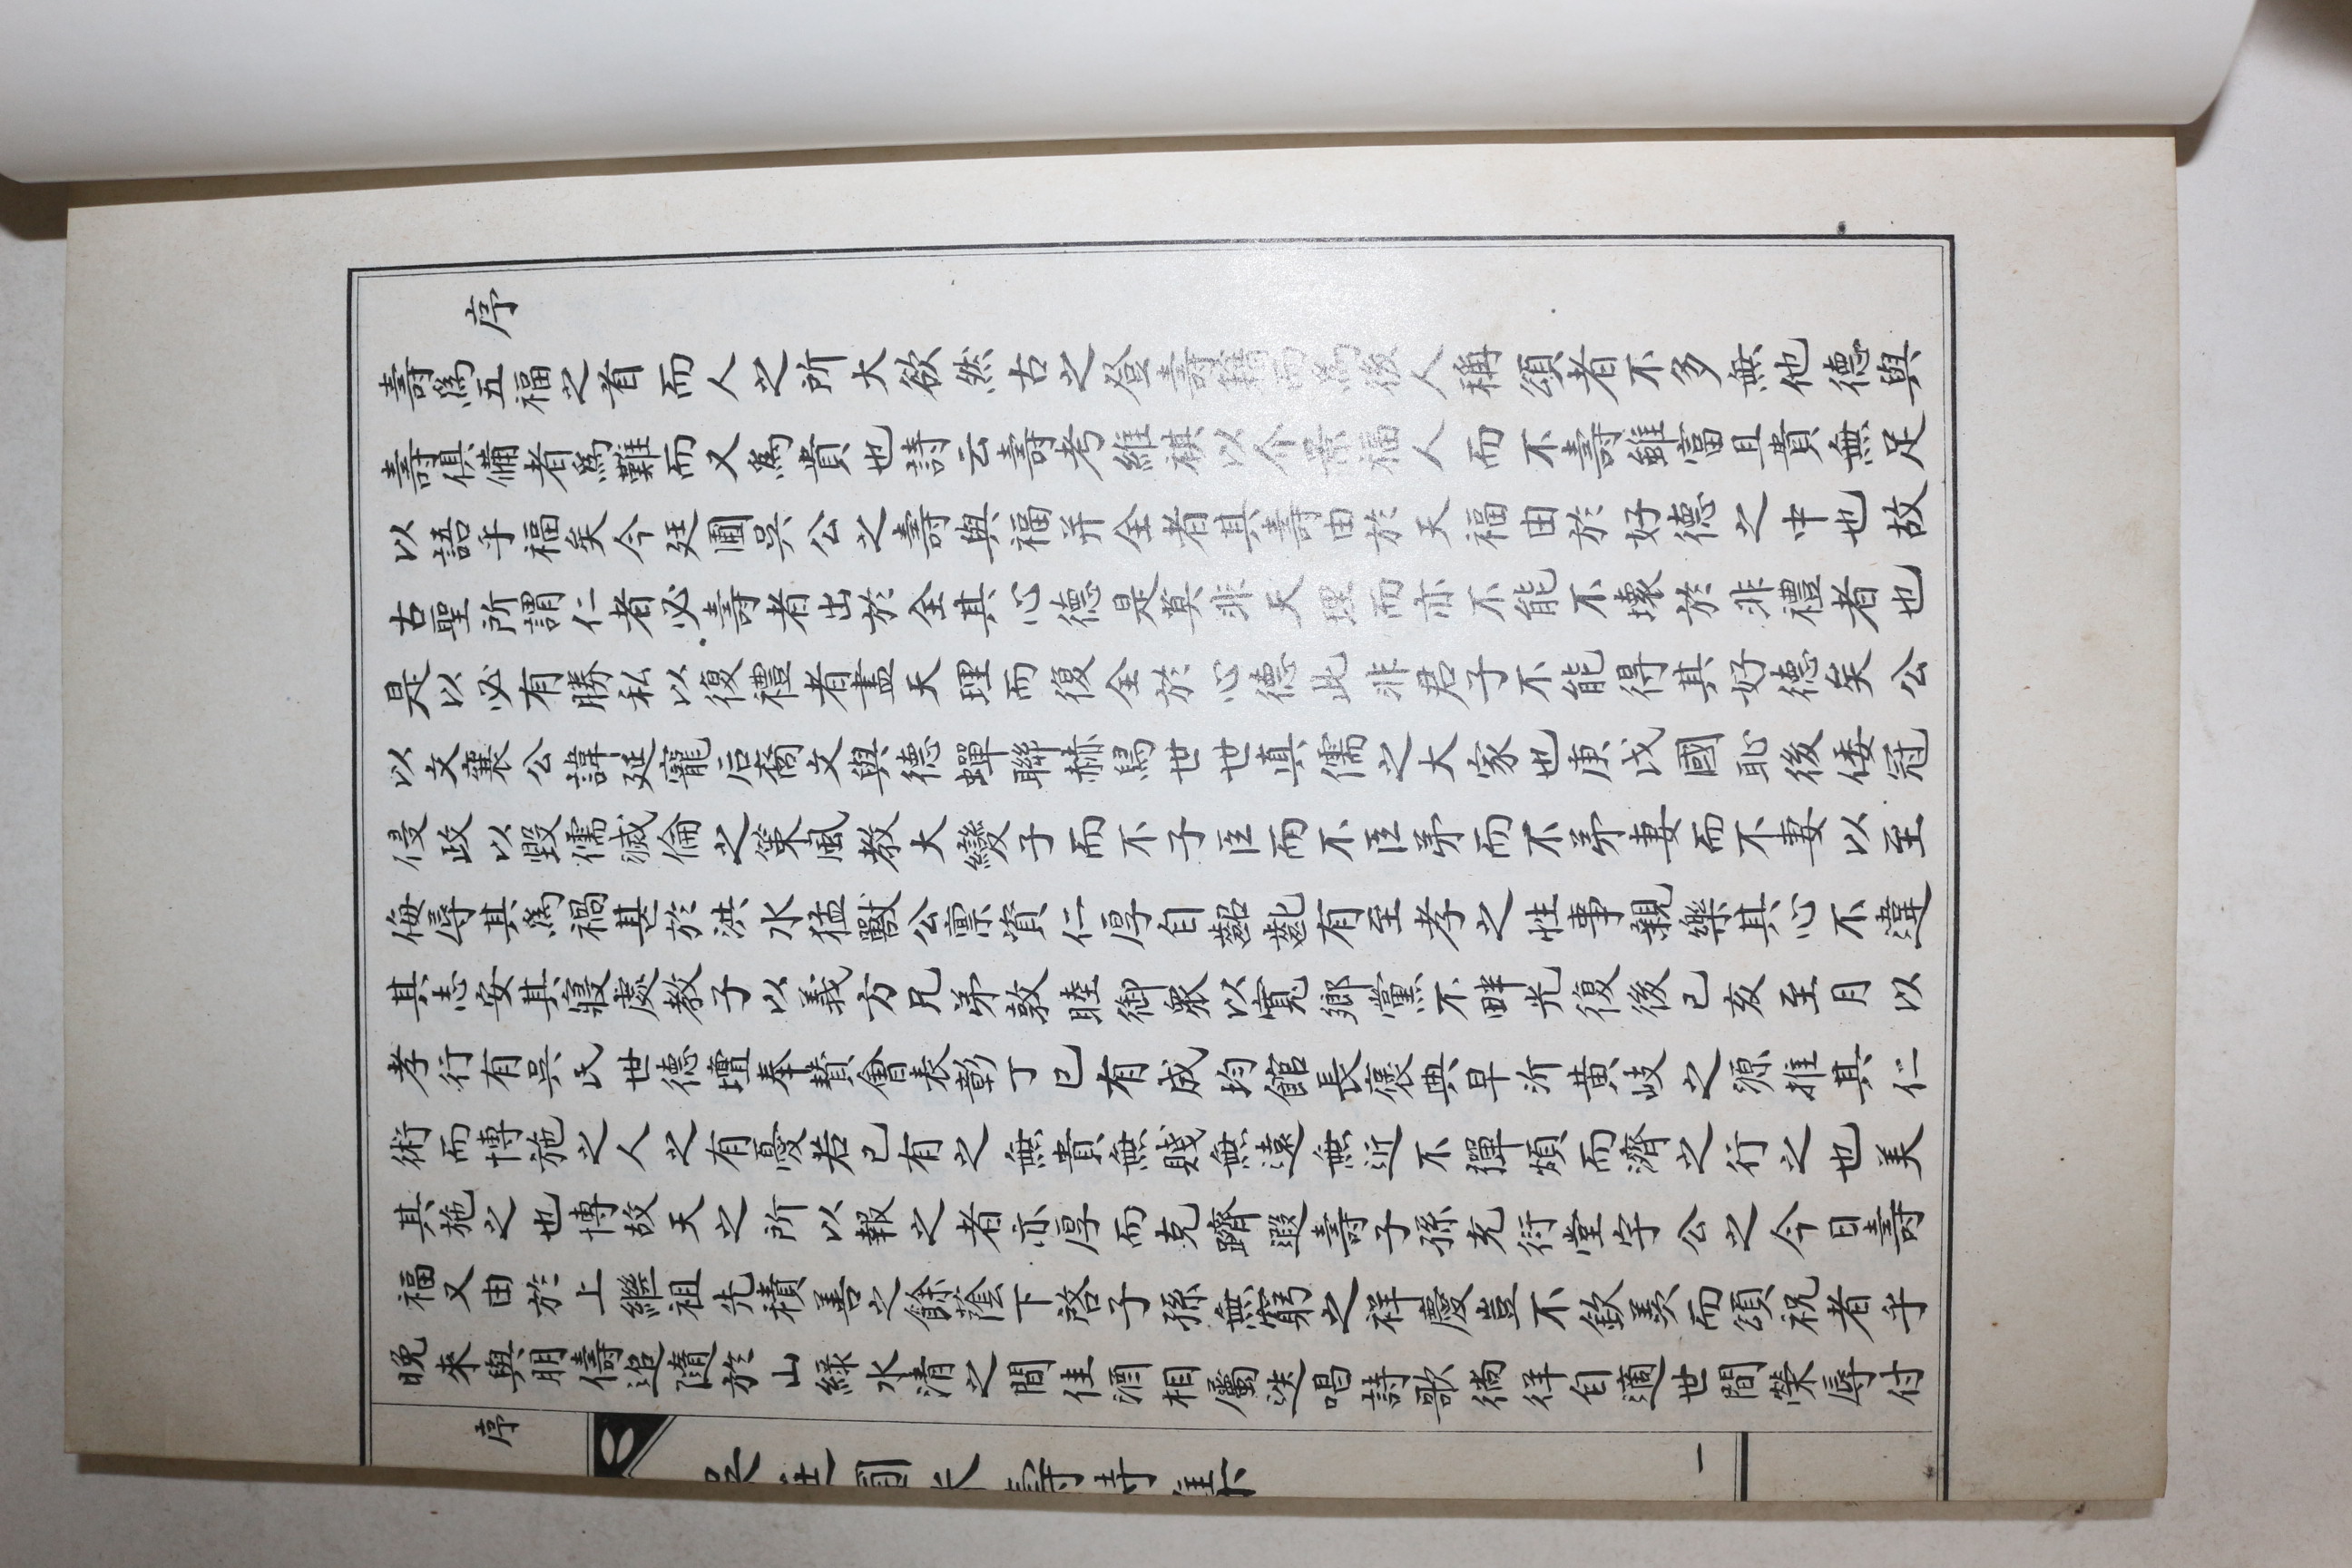 序
壽爲五福之首而人之所大欲然古之登壽籍而爲後人稱頌者不多無他德與
壽俱備者爲難而又爲貴也詩云壽考維祺以介景福人而不壽雖富且貴無足
以語乎福矣今廷圃吳公之壽與福并全者其壽由於天福由於好德之中也故
古聖所謂仁者必壽者出於全其心德是莫非天理而亦不能不壞於非禮者也
是以必有勝私以復禮者盡天理而復全於心德此非君子不能得其好德矣公
以文襄公諱延寵后裔文與德蟬聯赫舃世世真儒之大家也庚戌國恥後倭冠
侵政以毀儒滅倫之策風教大變子而不子臣而不臣弟而不弟妻而不妻以至
侮辱其爲禍甚於洪水猛獸公稟資仁厚自齠齔有至孝之性事親樂其心不違
其志安其寢處教子以義方兄弟敦睦御衆以寬鄉黨不畔光復後己亥至月以
孝行有吳氏世德壇奉贊會表彰丁巳有成均館長褒典早沂黃岐之源推其仁
術而博施之人之有憂若己有之無貴無賤無遠無近不憚煩而濟之行之也美
其施之也博故天之所以報之者亦厚而克躋遐壽子孫充衍堂宇公之今日壽
福又由於上繼祖先積善之餘蔭下啓子孫無窮之祥慶豈不欽羨而頌祝者乎
晚來與朋儔追隨於山綠水清之間佳酒相屬迭唱詩歌徜徉自適世間榮辱付
序
一